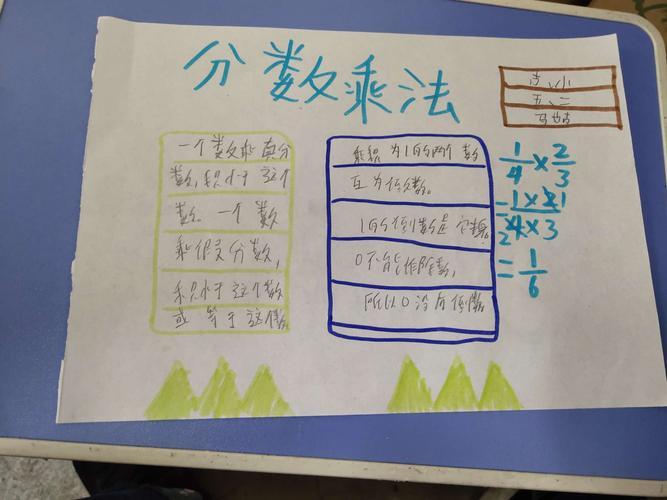 分数乘法
一个数乘真分
数,积小于这个
数。一个数
乘假分数,
积小于这个数
或等于这个数。
乘积为1的两个数
互为倒数。
1的倒数是它本身。
0不能作除数,
所以0没有倒数
五、二
1/4×2/3
=1×2 1/4×3
2
=1/6